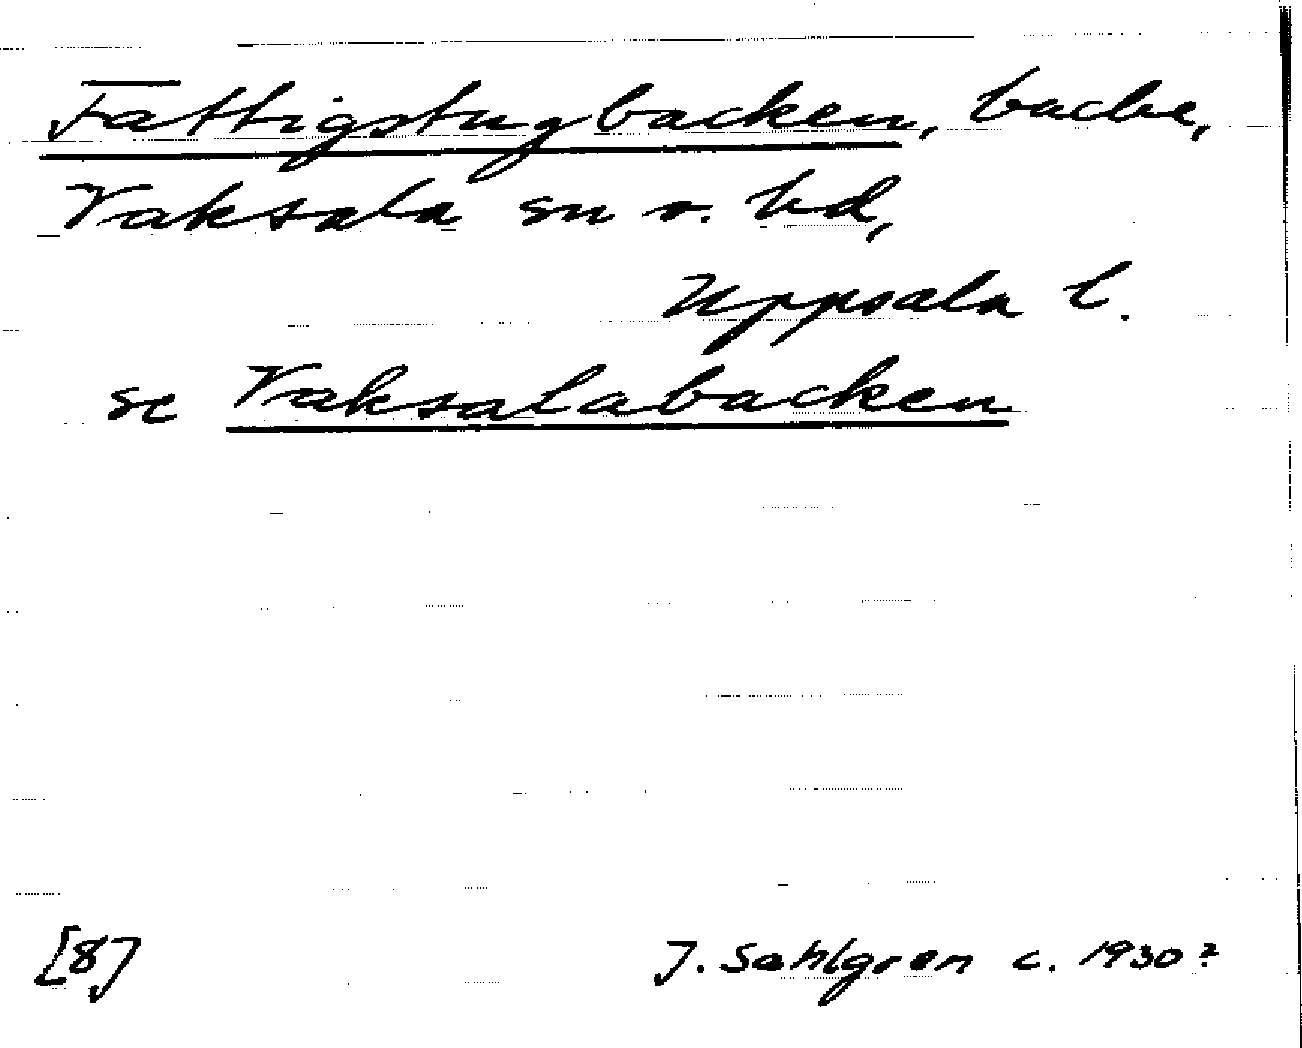 Fattigstugbacken, backe,
Vaksala sn o. hd,
Uppsala l.
se Vaksalabacken
[8] J. Sahlgren c. 1930?